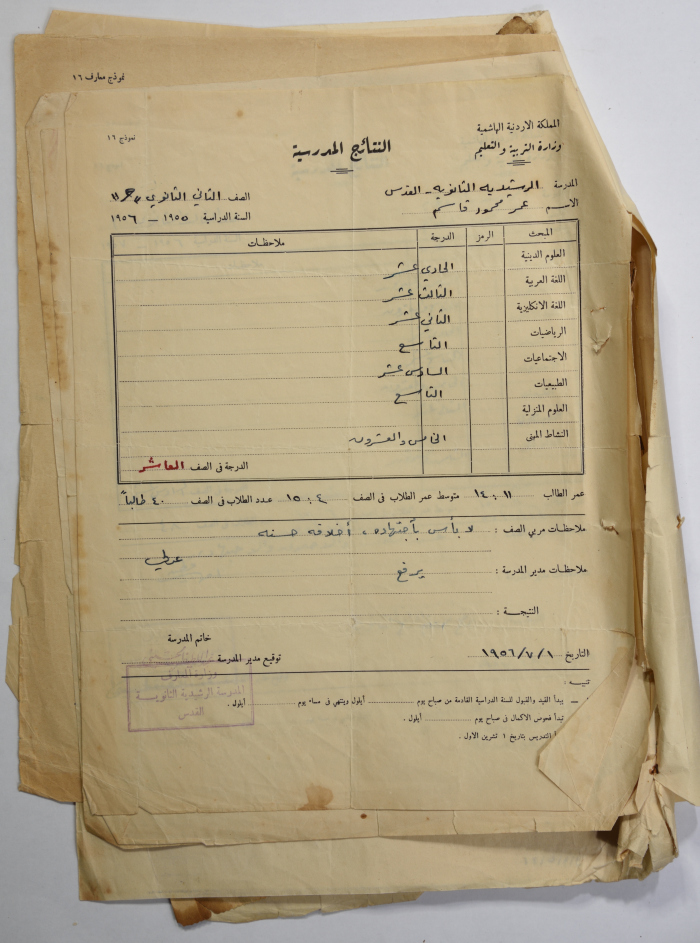 نموذج معارف ١٦
المملكة الاردنية الهاشمية
وزارة التربية والتعليم
النتائج المدرسية
نموذج ١٦
المدرسة الرشيديه الثانويه - القدس
الصف الثاني الثانوي
الاسم عمر محمود قاسم
السنة الدراسية ١٩٥٥ - ١٩٥٦
المبحث الرمز الدرجة ملاحظات
العلوم الدينية الحادي عشر
اللغة العربية الثالث عشر
اللغة الانكليزية الثاني عشر
الرياضيات التاسع
الاجتماعيات السادس عشر
الطبيعيات التاسع
العلوم المنزلية
النشاط المهني الخامس والعشرون
الدرجة في الصف العاشر
عمر الطالب ١١ : ١٤ متوسط عمر الطلاب في الصف ٤ : ١٥ عدد الطلاب في الصف ٤٠ طالباً
ملاحظات مربي الصف : لا بأس بأجتهاده ، أخلاقه حسنه
ملاحظات مدير المدرسة : يرفع
النتيجة :
خاتم المدرسة
التاريخ ١ / ٧ / ١٩٥٦
توقيع مدير المدرسة
وزارة المعارف
المدرسة الرشيدية الثانوية
القدس
تنبيه :
يبدأ القيد والقبول للسنة الدراسية القادمة من صباح يوم أيلول وينتهي في مساء يوم أيلول .
تبدأ فحوص الاكمال في صباح يوم أيلول .
التدريس بتاريخ ١ تشرين الاول .